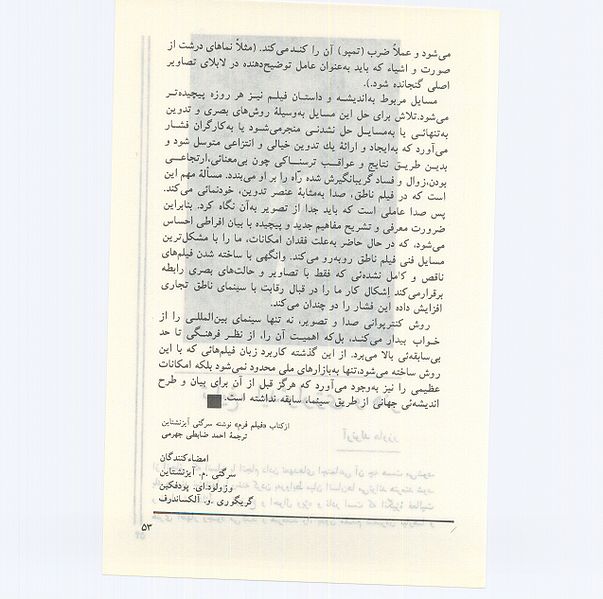 می‌شود و عملاً ضرب (تمپو) آن را کنـد می‌کند. (مثلاً نماهای درشت از
صورت و اشیاء که باید به‌عنوان عامل توضیح‌دهنده در لابلای تصاویر
اصلی گنجانده شود.).
مسایل مربوط به‌اندیشـه و داستـان فیلـم نیـز هر روزه پیچیده‌تـر
می‌شود.تلاش برای حل این مسایل به‌وسیلهٔ روش‌های بصری و تدوین
به‌تنهائـی یا به‌مسایـل حل نشدنـی منجرمی‌شـود یا به‌کارگران فشـار
می‌آورد که به‌ایجاد و ارائهٔ یك تدوین خیالی و انتزاعی متوسل شود و
بدیـن طریـق نتایج و عواقـب ترسنـاکی چون بی‌معنائی،ارتجاعـی
بودن،زوال و فساد گریبانگیرش شده راه را بر او می‌بندد. مسألهٔ مهم این
است که در فیلم ناطق، صدا به‌مثابهٔ عنصر تدوین، خودنمائی می‌کند.
پس صدا عاملی است که باید جدا از تصویر به‌آن نگاه کرد. بنابراین
ضرورت معرفی و تشریح مفاهیم جدید و پیچیده با بیان افراطی احساس
می‌شود، که در حال حاضر به‌علت فقدان امکانات، ما را با مشکل‌ترین
مسایل فنی فیلم ناطق روبه‌رو می‌کند. وانگهی با ساخته شدن فیلم‌های
ناقص و کامل نشده‌ئی که فقط با تصاویر و حالت‌های بصری رابطه
برقرارمی‌کند اِشکال کار ما را در قبال رقابت با سینمای ناطق تجاری
افزایش داده این فشار را دو چندان می‌کند.
روش کنترپوانی صدا و تصویر، نه تنها سینمای بین‌المللـی را از
خـواب بیدار می‌کنـد، بل‌که اهمیـت آن را، از نظـر فرهنگـی تا حد
بی‌سابقه‌ئی بالا می‌برد. از این گذشته کاربرد زبان فیلم‌هائی که با این
روش ساخته می‌شود،تنها به‌بازارهای ملی محدود نمی‌شود بلکه امکانات
عظیمی را نیز به‌وجود می‌آورد که هرگز قبل از آن برای بیان و طرح
اندیشه‌ئی جهانی از طریق سینما، سابقه نداشته است.
ازکتاب «فیلم فرم» نوشتـه سرگئی آیزنشتاین
ترجمهٔ احمد ضابطی جهرمی
امضاءکنندگان
سرگئی .م. آیزنشتاین
وزولود.ای. پودفکین
گریگوری .و. آلکساندرف
۵۳